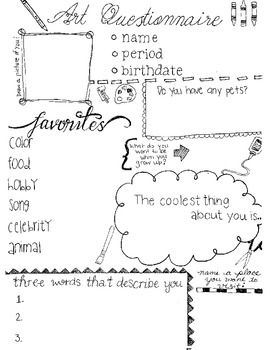 Art Questionnaire
draw a picture of you!
name
period
birthdate
Do you have any pets?
favorites
color
food
hobby
song
celebrity
animal
what do you want to be when you grow up?
The coolest thing
about you is...
name a place
you want to
visit!
three words that describe you
1.
2.
3.